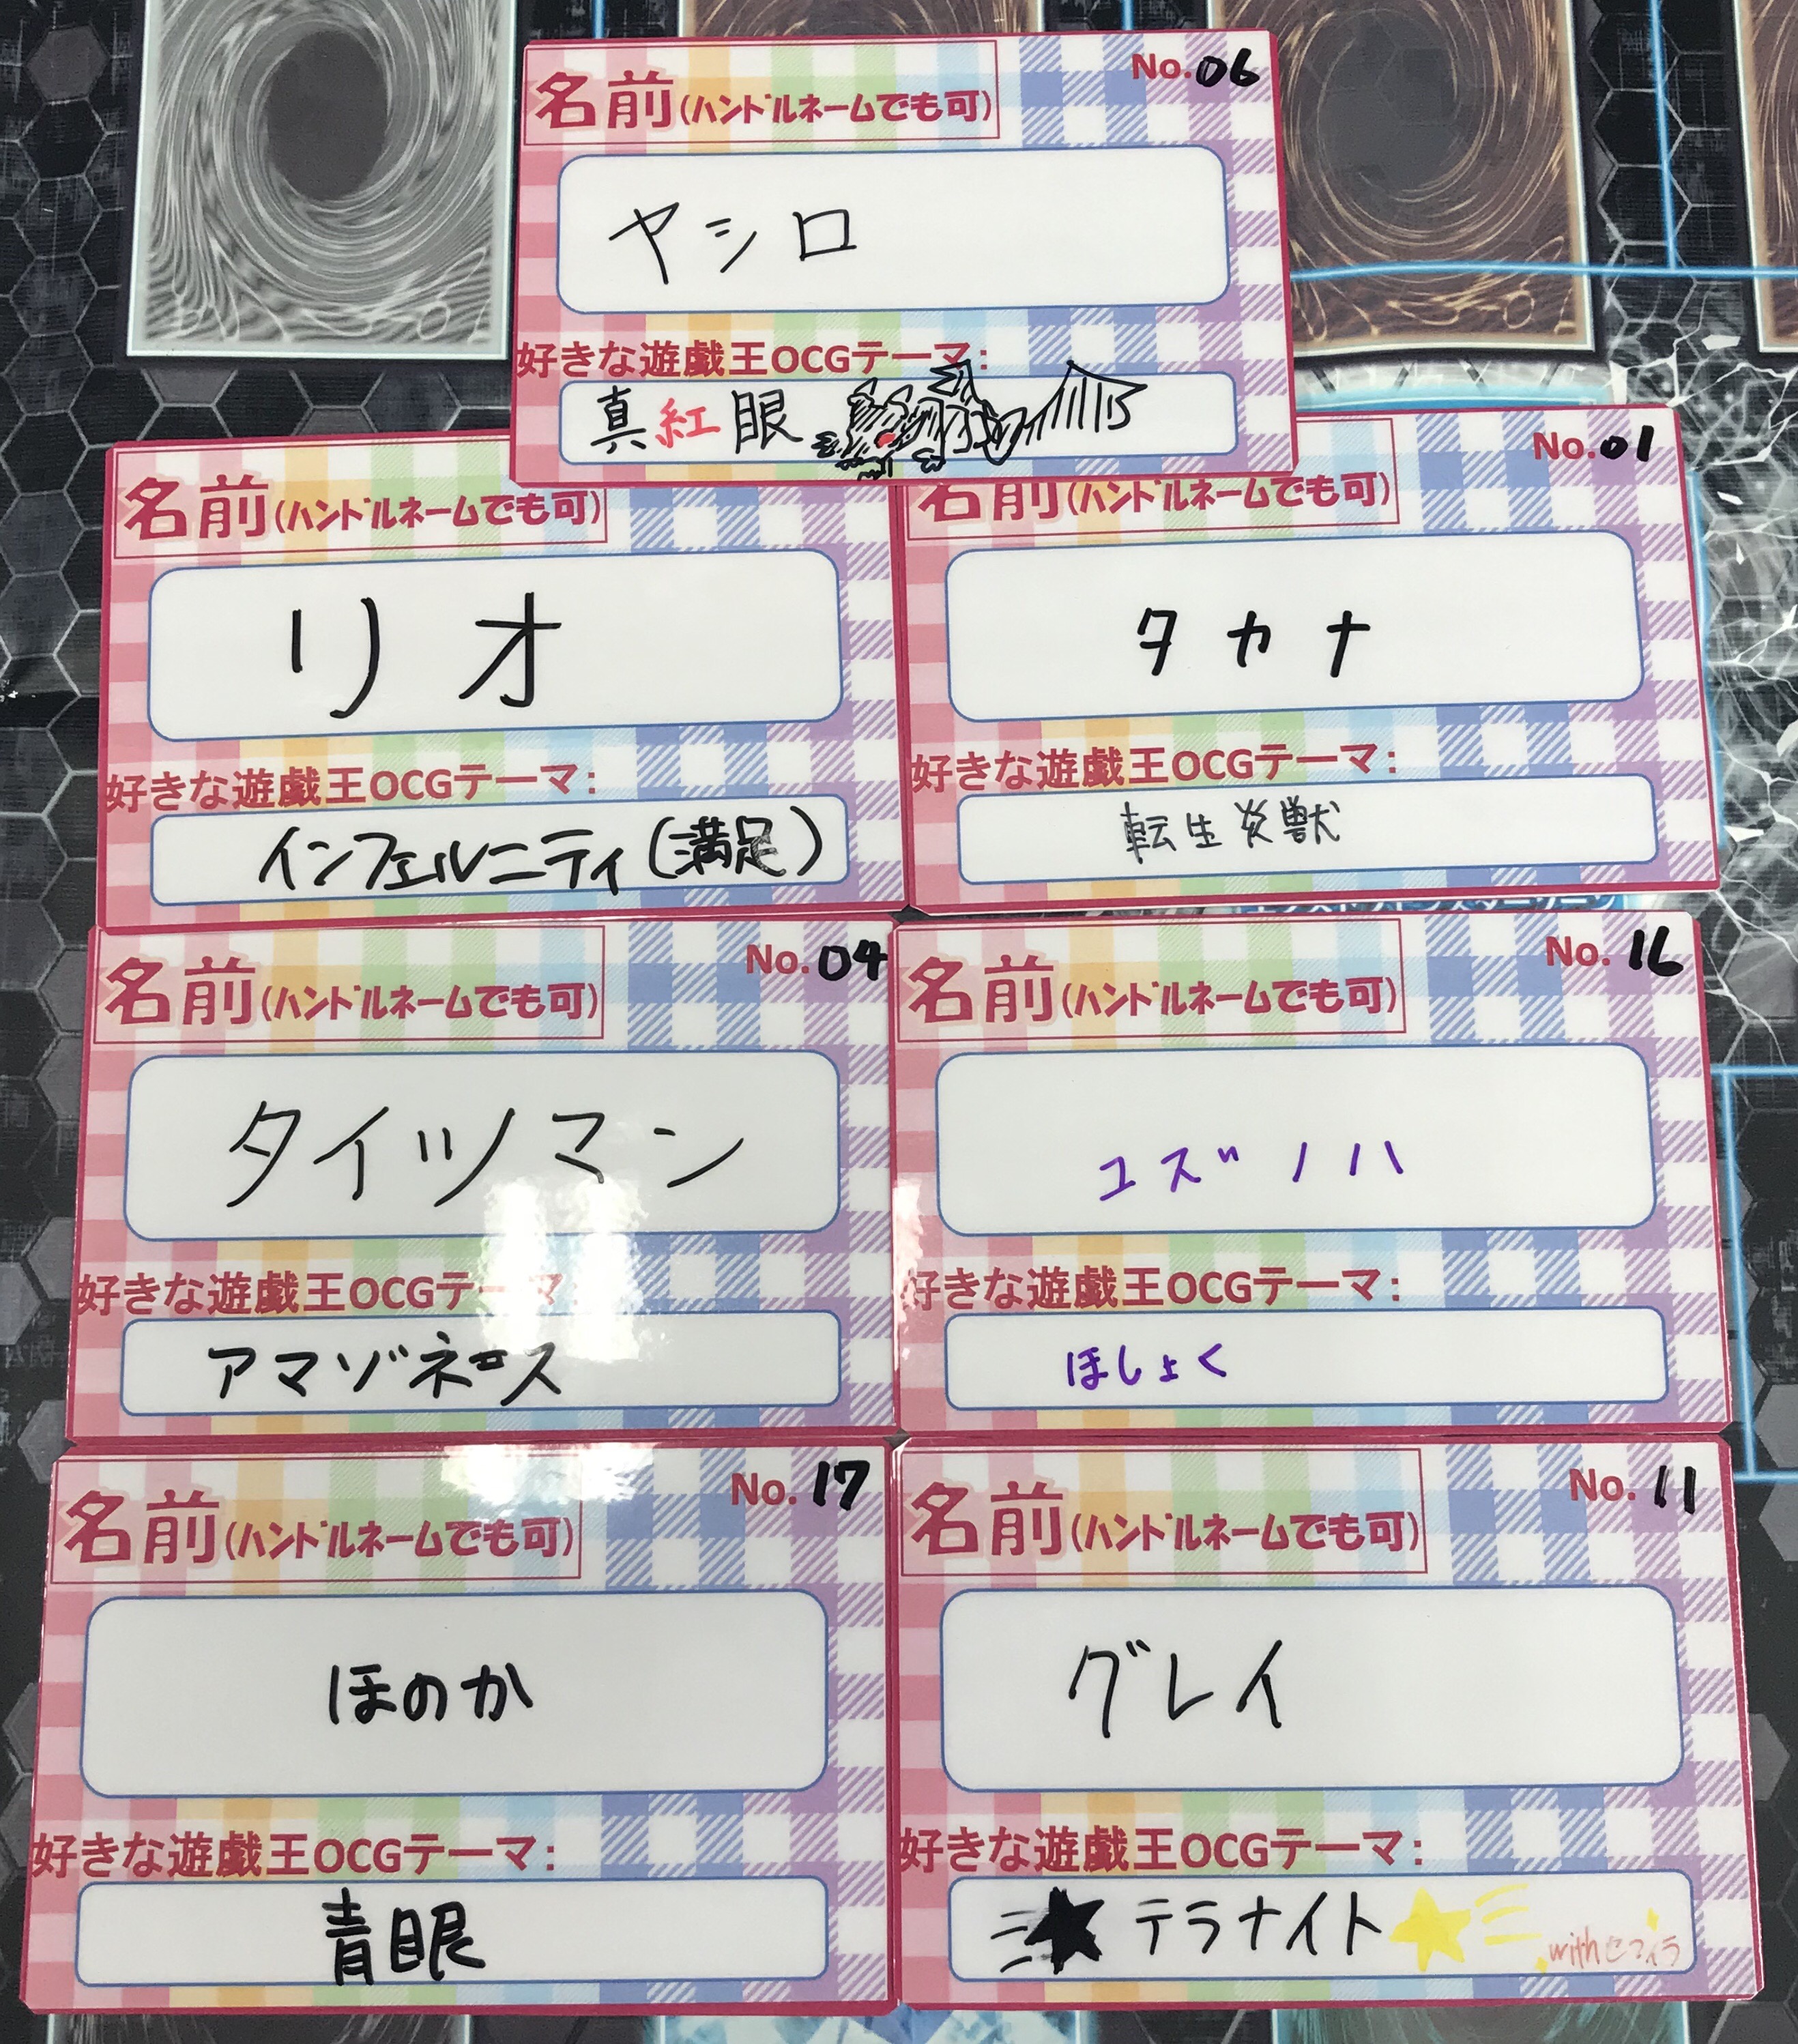 No.06
名前(ハンドルネームでも可)
ヤシロ
好きな遊戯王OCGテーマ:
真紅眼
名前(ハンドルネームでも可)
リオ
好きな遊戯王OCGテーマ:
インフェルニティ(満足)
No.01
名前(ハンドルネームでも可)
タカナ
好きな遊戯王OCGテーマ:
転生炎獣
No.04
名前(ハンドルネームでも可)
タイツマン
好きな遊戯王OCGテーマ
アマゾネス
No.16
名前(ハンドルネームでも可)
ユズノハ
好きな遊戯王OCGテーマ:
ほしょく
No.17
名前(ハンドルネームでも可)
ほのか
好きな遊戯王OCGテーマ:
青眼
No.11
名前(ハンドルネームでも可)
グレイ
好きな遊戯王OCGテーマ:
★テラナイト★
withセフィラ